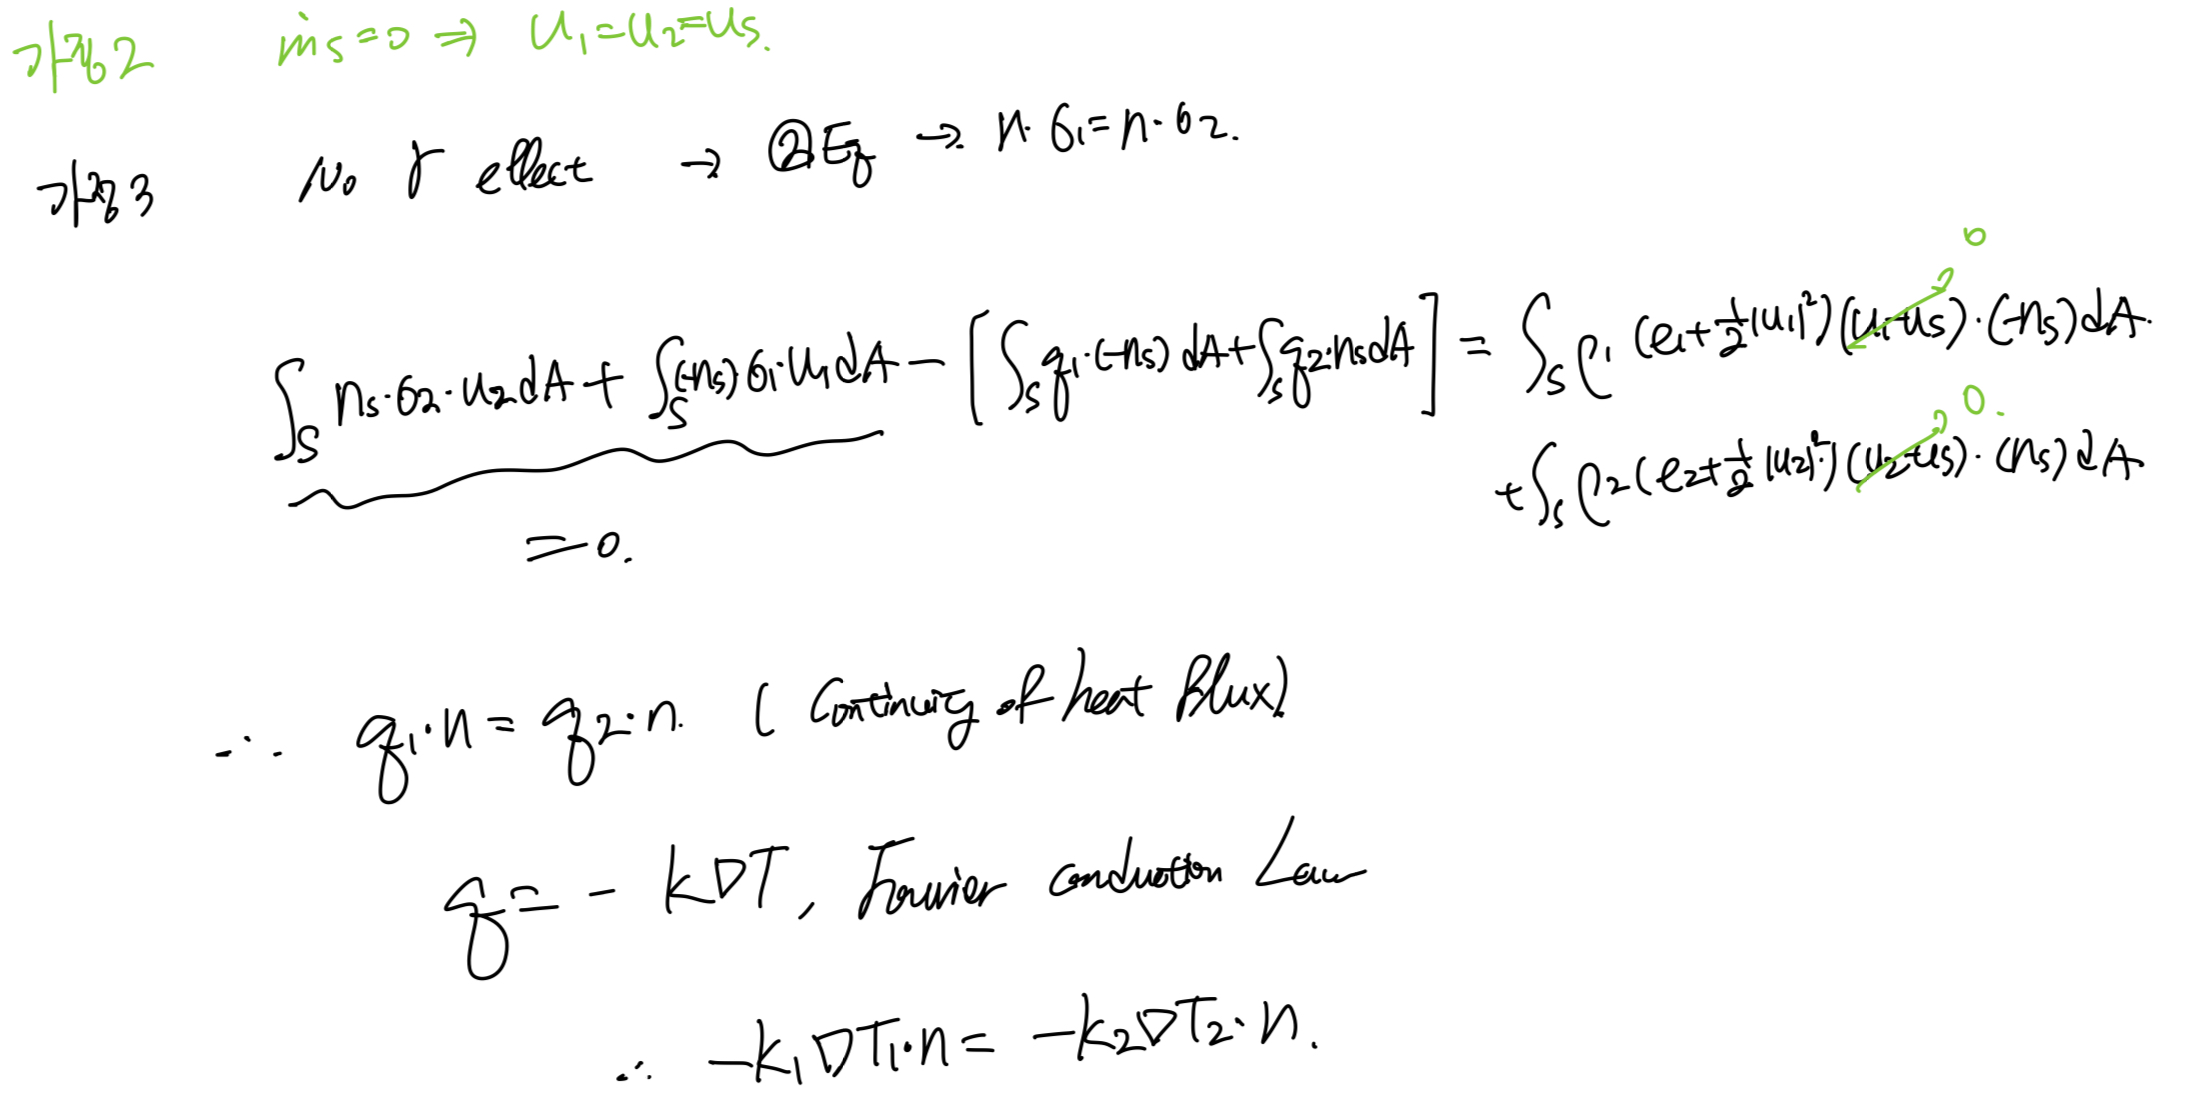 가정2 ṁs=0 ⇒ u₁=u₂=us.
가정3 No γ effect → ②Eq → n·σ₁=n·σ₂.
0
∫s ns·σ₂·u₂dA + ∫s(-ns)·σ₁·u₁dA - [∫s q₁·(-ns)dA + ∫s q₂·ns dA] = ∫s ρ₁(e₁+½|u₁|²)(u₁-us)·(-ns)dA.
0.
+∫s ρ₂(e₂+½|u₂|²)(u₂-us)·(ns)dA
=0.
∴ q₁·n = q₂·n. (Continuity of heat flux)
q = -k∇T, Fourier conduction Law
∴ -k₁∇T₁·n = -k₂∇T₂·n.